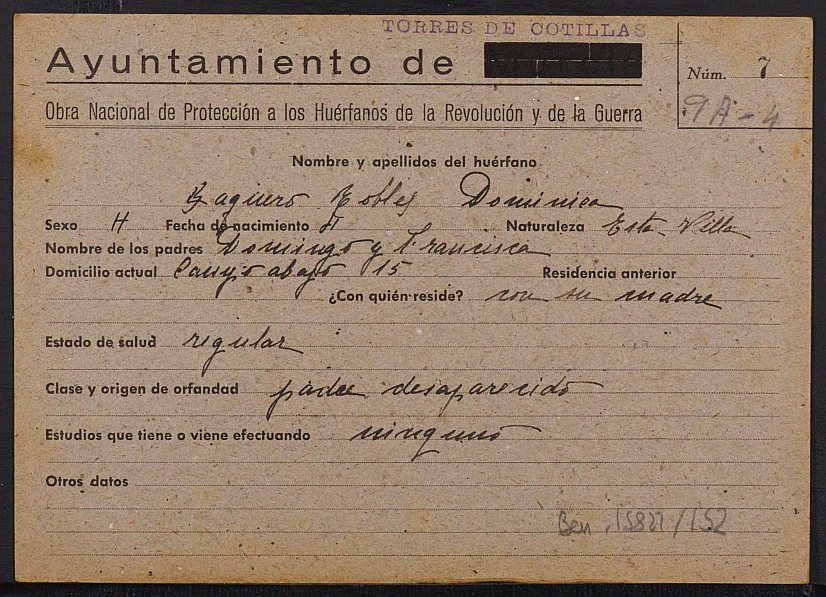 TORRES DE COTILLAS
Ayuntamiento de
Núm. 7
9A-4
Obra Nacional de Protección a los Huérfanos de la Revolución y de la Guerra
Nombre y apellidos del huérfano
Robles Dominica
Sexo H Fecha de nacimiento Naturaleza Esta Villa
Nombre de los padres Domingo y Francisca
Domicilio actual abajo 15 Residencia anterior
¿Con quién reside? con su madre
Estado de salud regular
Clase y origen de orfandad padre desaparecido
Estudios que tiene o viene efectuando ninguno
Otros datos
Ben .15827/152